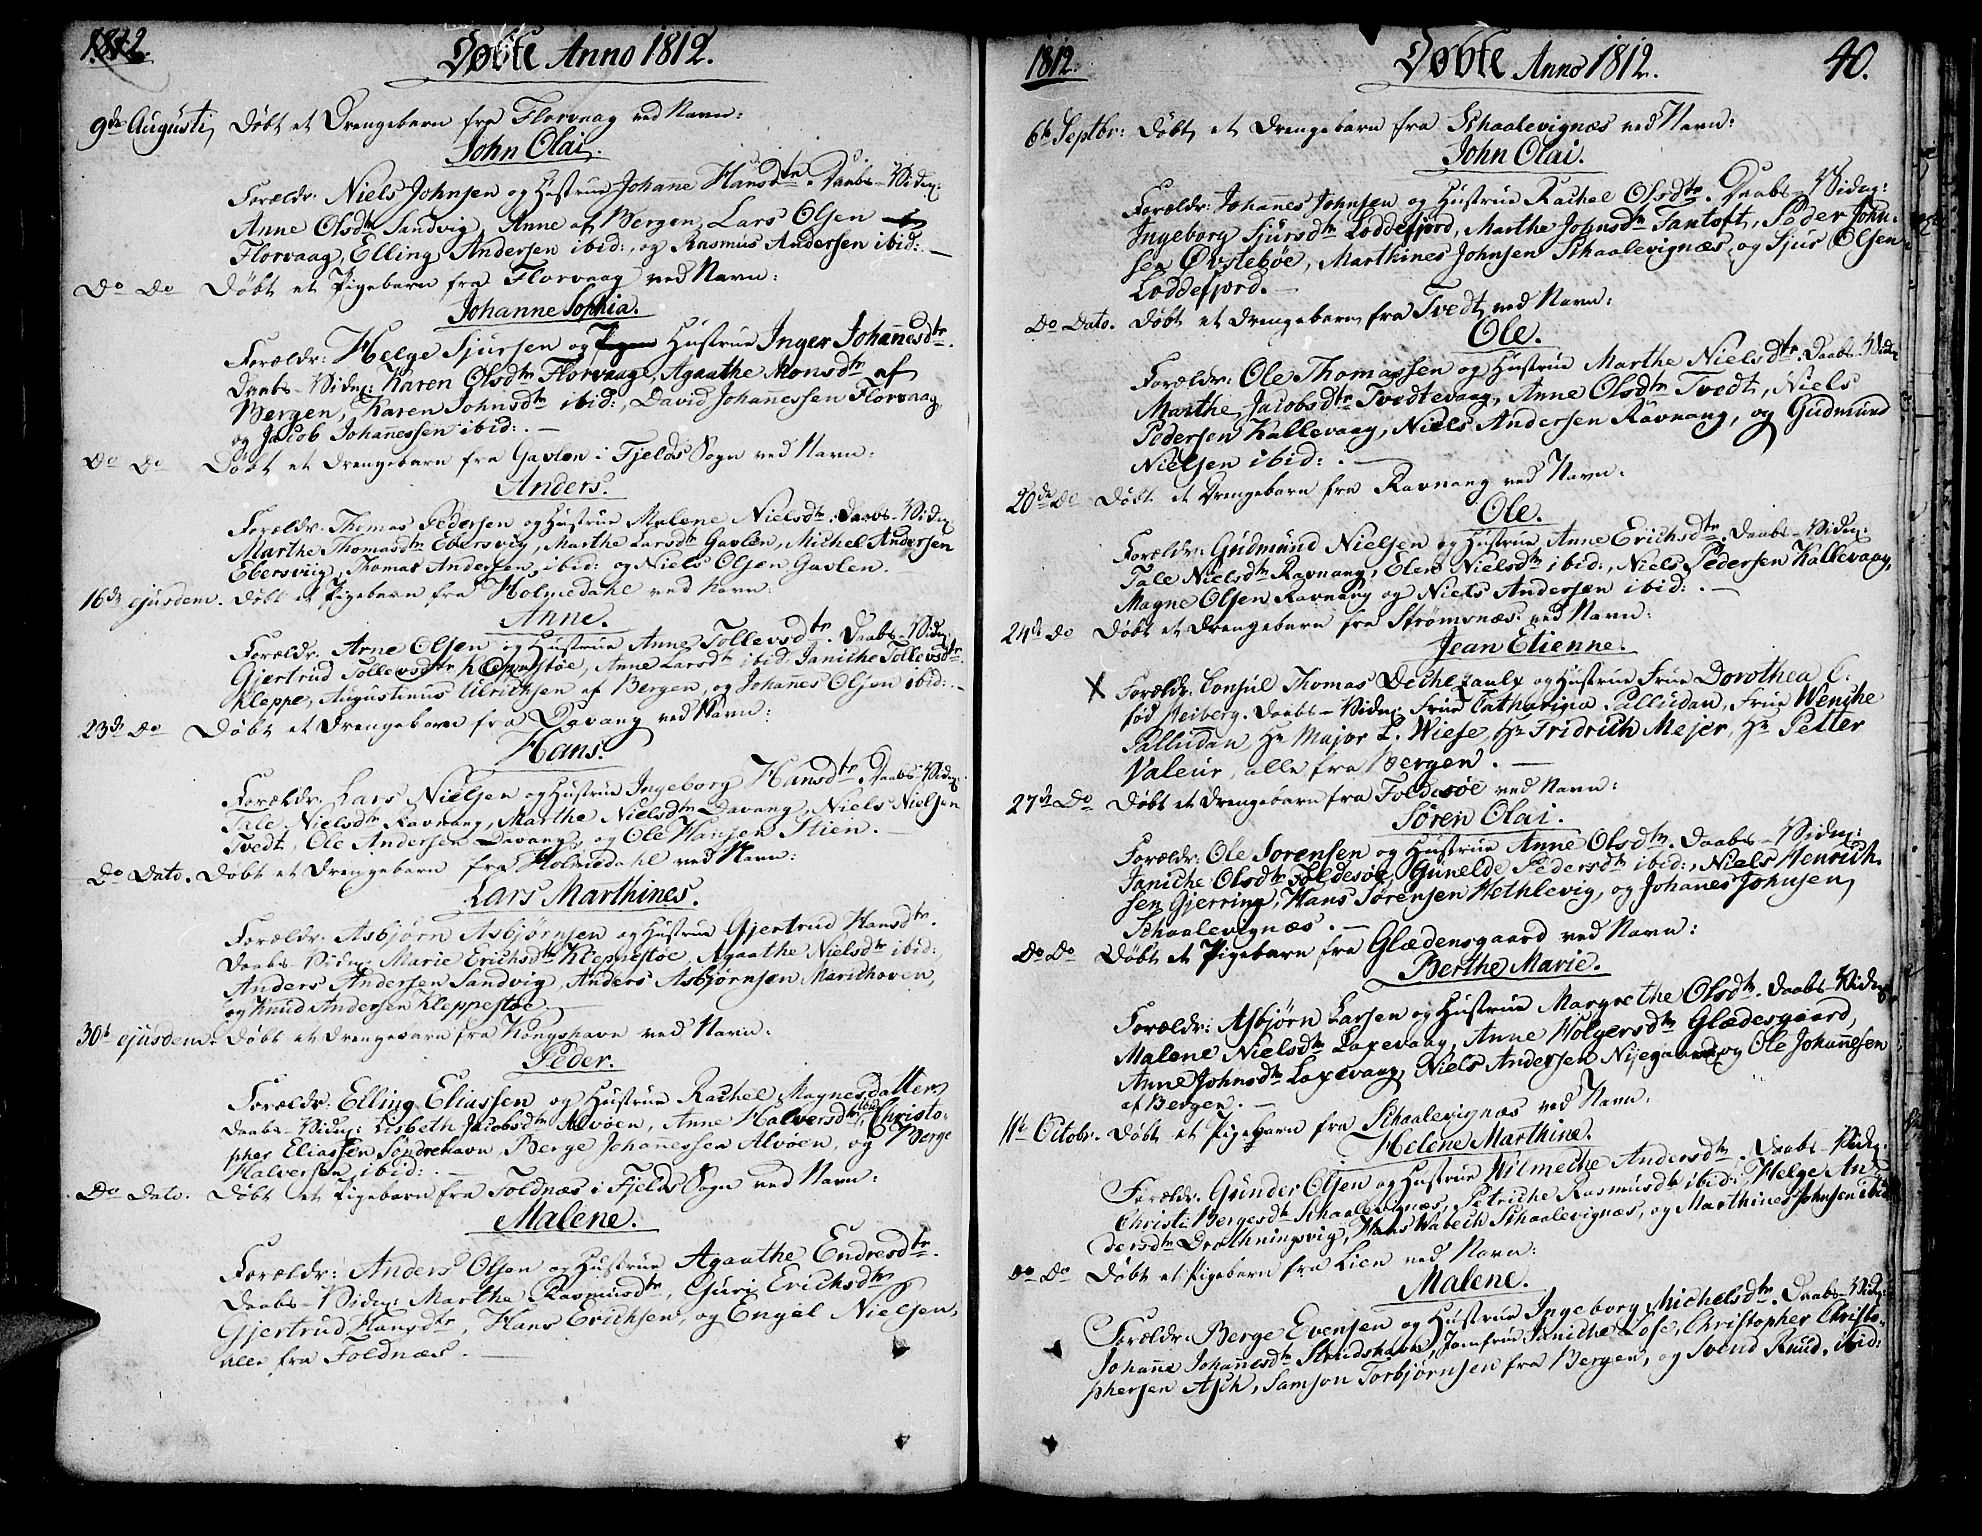 1812.
Døbte Anno 1812.
9de Augusti, Døbt et Drengebarn fra Florvaag ved Navn:
John Olai.
Forældr: Niels Johnsen og Hustrue Johanne Hansdtr. Daabs-Vidn:
Anne Olsdtr Sandvig, Anne af Bergen, Lars Olsen
Florvaag, Elling Andersen ibid:, og Rasmus Andersen ibid:. —
Do Do Døbt et Pigebarn fra Florvaag ved Navn:
Johanne Sophia.
Forældr: Helge Sjursen og Hustrue Inger Johannesdtr.
Daabs-Vidn: Karen Olsdtr Florvaag, Agaathe Monsdtr af
Bergen, Karen Johnsdtr ibid:, David Johanessen Florvaag,
og Jacob Johannessen ibid:. —
Do Do Døbt et Drengebarn fra Gavlen i Fjelds Sogn ved Navn:
Anders.
Forældr: Thomas Pedersen og Hustrue Malene Nielsdtr. Daabs-Vidn:
Marthe Thomasdtr Ebersviig, Marthe Larsdtr Gavlen, Michel Andersen
Ebersviig, Thomas Andersen, ibid: og Niels Olsen Gavlen.
16de ejusdem. Døbt et Pigebarn fra Holmedahl ved Navn:
Anne.
Forældr: Arne Olsen og Hustrue Anne Tollevsdtr. Daabs-Vidn:
Gjertrud Tollevsdtr Kleppestøe, Anne Larsdtr ibid: Janiche Tollevsdtr
Kleppe, Augustinus Ulrichsen af Bergen, og Johannes Olsen ibid:. —
23de Do Døbt et Drengebarn fra Davang ved Navn:
Hans.
Forældr: Lars Nielsen og Hustrue Ingeborg Hansdtr. Daabs-Vidn:
Tale Nielsdtr Ravnang, Marthe Nielsdtr Davang, Niels Nielsen
Tvedt, Ole Andersen Davang, og Ole Hansen Stien. —
Do Dato. Døbt et Drengebarn fra Holmedahl ved Navn:
Lars Marthines.
Forældr: Asbjørn Asbjørnsen og Hustrue Gjertrud Hansdtr.
Daabs-Vidn: Marie Erichsdtr Kleppestøe, Agaathe Nielsdtr ibid:
Anders Andersen Sandvig, Anders Asbjørnsen Marichoven,
og Knud Andersen Kleppestøe. —
30te ejusdem. Døbt et Drengebarn fra Kongshavn ved Navn:
Peder.
Forældr: Elling Eliassen og Hustrue Rachel Magnesdatter.
Daabs-Vidn: Lisbeth Jacobsdtr Alvøen, Anne Halversdtr ibid, Christo-
pher Eliassen Søndrehavn, Berge Johannessen Alvøen, og Berge
Halversen ibid:. —
Do Dato. Døbt et Pigebarn fra Foldnæs i Fjelds Sogn ved Navn:
Malene.
Forældr: Anders Olsen og Hustrue Agaathe Endresdtr.
Daabs-Vidn: Marthe Rasmusdtr, Guri Erichsdtr,
Gjertrud Hansdtr, Hans Erichsen, og Engel Nielsen,
alle fra Foldnæs. —
1812.
Døbte Anno 1812.
40.
6te Septbr: Døbt et Drengebarn fra Schaalevignæs ved Navn:
John Olai.
Forældr: Johannes Johnsen og Hustrue Rachel Olsdtr. Daabs-Vidn:
Ingeborg Sjursdtr Loddefjord, Marthe Johnsdtr Fantoft, Peder John-
sen Øvstebøe, Marthines Johnsen Schaalevignæs, og Sjur Olsen
Loddefjord. —
Do Dato. Døbt et Drengebarn fra Tvedt ved Navn:
Ole.
Forældr: Ole Thomassen og Hustrue Marthe Nielsdtr. Daabs-Vidn:
Marthe Jacobsdtr Tvedtevaag, Anne Olsdtr Tvedt, Niels
Pedersen Kallevaag, Niels Andersen Ravnang, og Gudmund
Nielsen ibid:. —
20de Do Døbt et Drengebarn fra Ravnang ved Navn:
Ole.
Forældr: Gudmund Nielsen og Hustrue Anne Erichsdtr. Daabs-Vidn:
Tale Nielsdtr Ravnang, Olene Nielsdtr ibid:, Niels Pedersen Kallevaag,
Magne Olsen Ravnang og Niels Andersen ibid:. —
24de Do Døbt et Drengebarn fra Strømsnæs ved Navn:
Jean Etienne.
X Forældr: Consul Thomas Dechezaulx og Hustrue Frue Dorothea C.
fød Heiberg. Daabs-Vidn: Frue Catharina Palludan, Frue Wenche
Palludan, Hr Major L. Wiese, Hr Fridrich Mejer, Hr Petter
Valeur, alle fra Bergen. —
27de Do Døbt et Drengebarn fra Foldesøe ved Navn:
Søren Olai.
Forældr: Ole Sørensen og Hustrue Anne Olsdtr. Daabs-Vidn:
Janiche Olsdtr Foldesøe, Gunelde Pedersdtr ibid:, Niels Henrich-
sen Gjerring, Hans Sørensen Hethlevig, og Johanes Johnsen,
Schaalevignæs. —
Do Do Døbt et Pigebarn fra Glædensgaard ved Navn:
Berthe Marie.
Forældr: Asbjørn Larsen og Hustrue Margrethe Olsdtr. Daabs-Vidn:
Malene Nielsdtr Laxevaag, Anne Holgersdtr Glædesgaard,
Anne Johnsdtr Laxevaag, Niels Andersen Nijegaard og Ole Johannesen
af Bergen. —
11te Octobr. Døbt et Pigebarn fra Schaalevignæs ved Navn:
Helene Marthine.
Forældr: Gunder Olsen og Hustrue Vilmeche Andersdtr. Daabs-Vidn:
Christi Bergesdtr Schaalevignæs, Petriche Rasmusdtr ibid:, Helge An-
dersdtr Drothningsvig, Hans Wabech Schaalevignæs, og Marthines Johnsen ibid
Do Do Døbt et Pigebarn fra Lien ved Navn:
Malene.
Forældr: Berge Evensen og Hustrue Ingeborg Michelsdtr. Daabs-Vidn:
Johanne Johannesdtr Strudshavn, Jomfrue Janiche Lose, Christopher Christo-
phersen Asch, Samson Torbjørnsen fra Bergen, og Svend Knud. ibid: